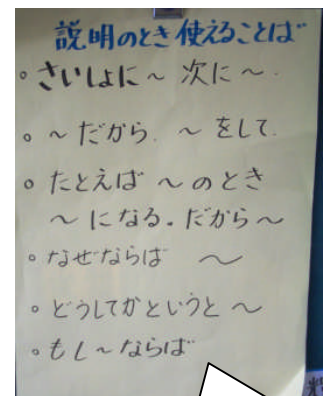 説明のとき使えることば
。さいしょに〜 次に〜.
。〜だから. 〜をして.
。たとえば 〜のとき
〜になる。だから〜
。なぜならば 〜
。どうしてかというと〜
。もし〜ならば